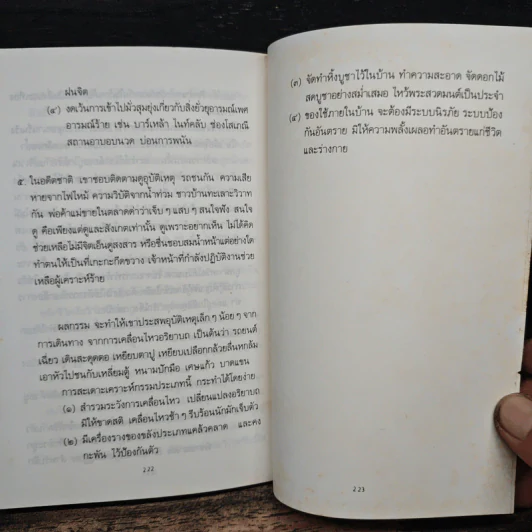 ฝนจิต
(๔) งดเว้นการเข้าไปมั่วสุมยุ่งเกี่ยวกับสิ่งยั่วยุอารมณ์เพศ
อารมณ์ร้าย เช่น บาร์เหล้า ไนท์คลับ ซ่องโสเภณี
สถานอาบอบนวด บ่อนการพนัน
๕. ในอดีตชาติ เขาชอบติดตามดูอุบัติเหตุ รถชนกัน ความเสีย
หายจากไฟไหม้ ความวิบัติจากน้ำท่วม ชาวบ้านทะเลาะวิวาท
กัน พ่อค้าแม่ขายในตลาดด่าว่าเจ็บ ๆ แสบ ๆ สนใจฟัง สนใจ
ดู คือเพียงแต่ดูและสังเกตเท่านั้น ดูเพราะอยากเห็น ไม่ได้คิด
ช่วยเหลือไม่มีจิตเอ็นดูสงสาร หรือชื่นชอบสมน้ำหน้าแต่อย่างใด
ทำตนให้เป็นที่เกะกะกีดขวาง เจ้าหน้าที่กำลังปฏิบัติงานช่วย
เหลือผู้เคราะห์ร้าย
ผลกรรม จะทำให้เขาประสพอุบัติเหตุเล็ก ๆ น้อย ๆ จาก
การเดินทาง จากการเคลื่อนไหวอริยาบถ เป็นต้นว่า รถยนต์
เฉี่ยว เดินสะดุดตอ เหยียบตาปู เหยียบเปลือกกล้วยลื่นหกล้ม
เอาหัวไปชนกับเหลี่ยมตู้ หนามปักมือ เศษแก้ว บาดแขน
การสะเดาะเคราะห์กรรมประเภทนี้ กระทำได้โดยง่าย
(๑) สำรวมระวังการเคลื่อนไหว เปลี่ยนแปลงอริยาบถ
มิให้ขาดสติ เคลื่อนไหวช้า ๆ รีบร้อนนักมักเจ็บตัว
(๒) มีเครื่องรางของขลังประเภทแคล้วคลาด และคง
กะพัน ไว้ป้องกันตัว
222
(๓) จัดทำหิ้งบูชาไว้ในบ้าน ทำความสะอาด จัดดอกไม้
สดบูชาอย่างสม่ำเสมอ ไหว้พระสวดมนต์เป็นประจำ
(๔) ของใช้ภายในบ้าน จะต้องมีระบบนิรภัย ระบบป้อง
กันอันตราย มิให้ความพลั้งเผลอทำอันตรายแก่ชีวิต
และร่างกาย
223